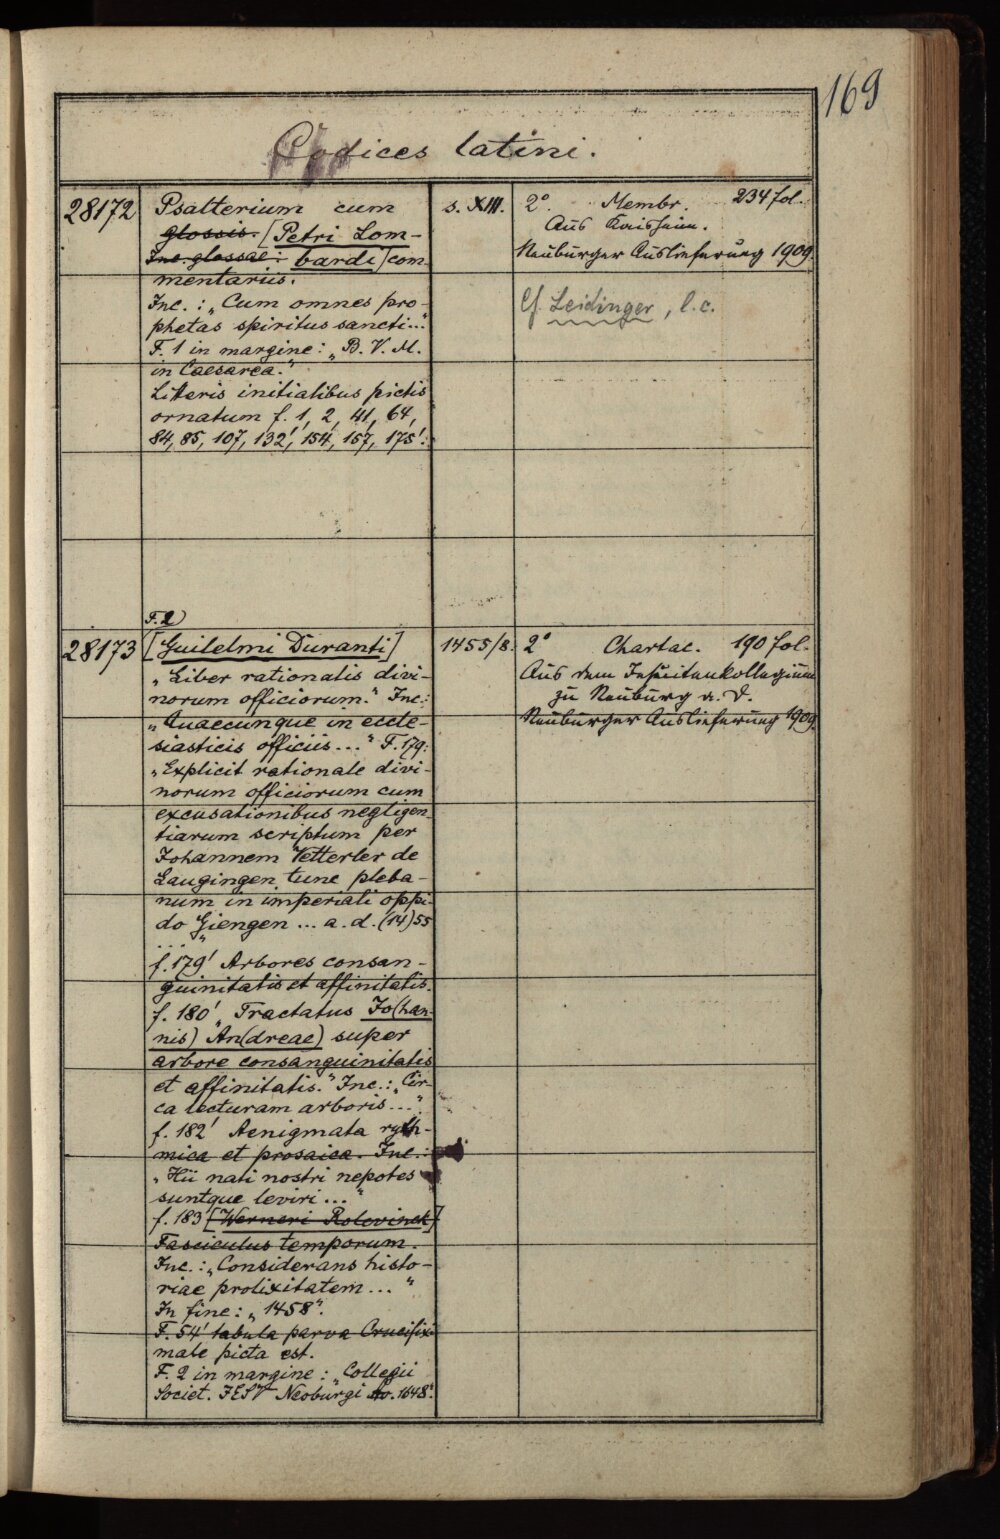 169
Codices latini.
28172
Psalterium cum
glossis. [Petri Lom-
Inc. glossae: bardi] com
mentariis.
Inc.: „Cum omnes pro-
phetas spiritus sancti..."
F. 1 in margine: „B. V. M.
in Caesarea."
Litteris initialibus pictis
ornatum f. 1, 2, 41, 64,
84, 85, 107, 132', 154, 157, 175'.
s. XIII.
2° Membr. 234 fol.
Aus Kaisheim.
Neuburger Auslieferung 1909.
Cf. Leidinger, l. c.
F. 2
28173
[Guilelmi Duranti]
„Liber rationalis divi-
norum officiorum." Inc.:
„Quaecunque in eccle-
siasticis officiis..." F. 179:
„Explicit rationale divi-
norum officiorum cum
excusationibus negligen-
tiarum scriptum per
Johannem Vetterler de
Laugingen tunc pleba-
num in imperiali oppi-
do Giengen ... a. d. (14)55
..."
f. 179' Arbores consan-
guinitatis et affinitatis.
f. 180' „Tractatus Jo(han-
nis) An(dreae) super
arbore consanguinitatis
et affinitatis." Inc.: „Cir-
ca lecturam arboris..."
f. 182' Aenigmata ryth-
mica et prosaica. Inc.:
„Hii nati nostri nepotes
suntque leviri..."
f. 183 [Werneri Rolevinck]
Fasciculus temporum.
Inc.: „Considerans histo-
riae prolixitatem..."
In fine: „1458".
F. 54' tabula parva Crucifixi
male picta est.
F. 2 in margine: „Collegii
Societ. JESV Neoburgi Ao. 1648".
1455/8.
2° Chartac. 190 fol.
Aus dem Jesuitenkollegium
zu Neuburg a. D.
Neuburger Auslieferung 1909.